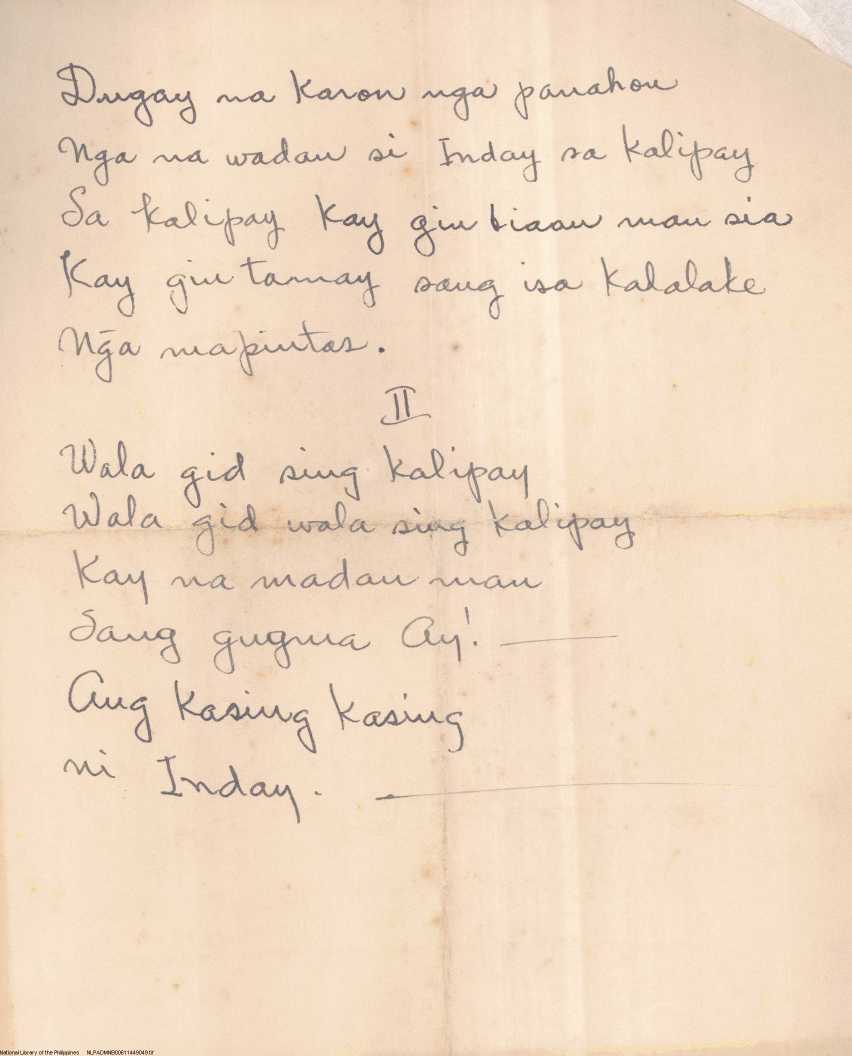 Dugay na karon nga panahon
Nga na wadan si Inday sa kalipay
Sa kalipay kay gin biaan man sia
Kay gin tamay sang isa kalalake
Nḡa mapintas.
II
Wala gid sing kalipay
Wala gid wala sing kalipay
Kay na madan man
Sang gugma Ay!. ———
Ang kasing kasing
ni Inday. ———
National Library of the Philippines NLPADMNB00611449049.tif